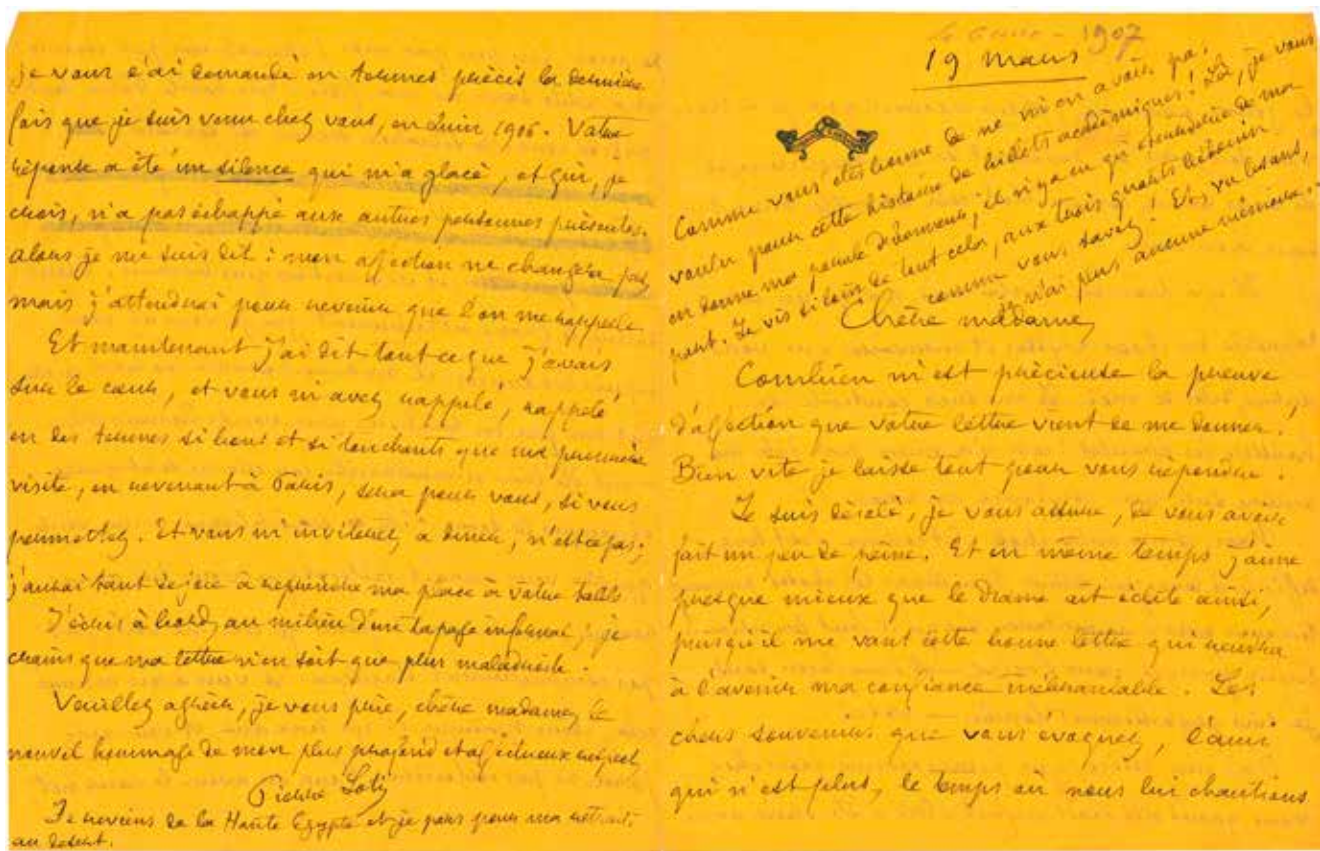 je vous l'ai demandé en termes précis la dernière
fois que je suis venu chez vous, en Juin 1906. Votre
réponse a été un silence qui m'a glacé, et qui, je
crois, n'a pas échappé aux autres personnes présentes.
alors je me suis dit : mon affection ne changera pas
mais j'attendrai pour revenir que l'on me rappelle
Et maintenant j'ai dit tout ce que j'avais
sur le cœur, et vous m'avez rappelé, rappelé
en des termes si bons et si touchants que ma première
visite, en revenant à Paris, sera pour vous, si vous
permettez. Et vous m'inviterez à dîner, n'est-ce pas;
j'aurai tant de joie à reprendre ma place à votre table
J'écris à bord, au milieu d'un tapage infernal, je
crains que ma lettre n'en soit que plus maladroite.
Veuillez agréer, je vous prie, chère madame, le
nouvel hommage de mon plus profond et affectueux respect
Pierre Loti
Je reviens de la Haute Egypte et je pars pour ma retraite
au désert.
1907
19 mars
Comme vous êtes bonne de ne m'en avoir pas
voulu pour cette histoire de billets académiques! Là, je vous
en donne ma parole d'honneur, il n'y a eu qu'étourderie de ma
part. Je vis si loin de tout cela, aux trois quarts bédouin
comme vous savez! Et, vu les ans,
je n'ai plus aucune mémoire.
Chère madame,
Combien m'est précieuse la preuve
d'affection que votre lettre vient de me donner!
Bien vite je laisse tout pour vous répondre.
Je suis désolé, je vous assure, de vous avoir
fait un peu de peine. Et en même temps j'aime
presque mieux que le drame ait éclaté ainsi,
puisqu'il me vaut cette bonne lettre qui rendra
à l'avenir ma confiance inébranlable. Les
chers souvenirs que vous évoquez, l'ami
qui n'est plus, le temps où nous lui chantions